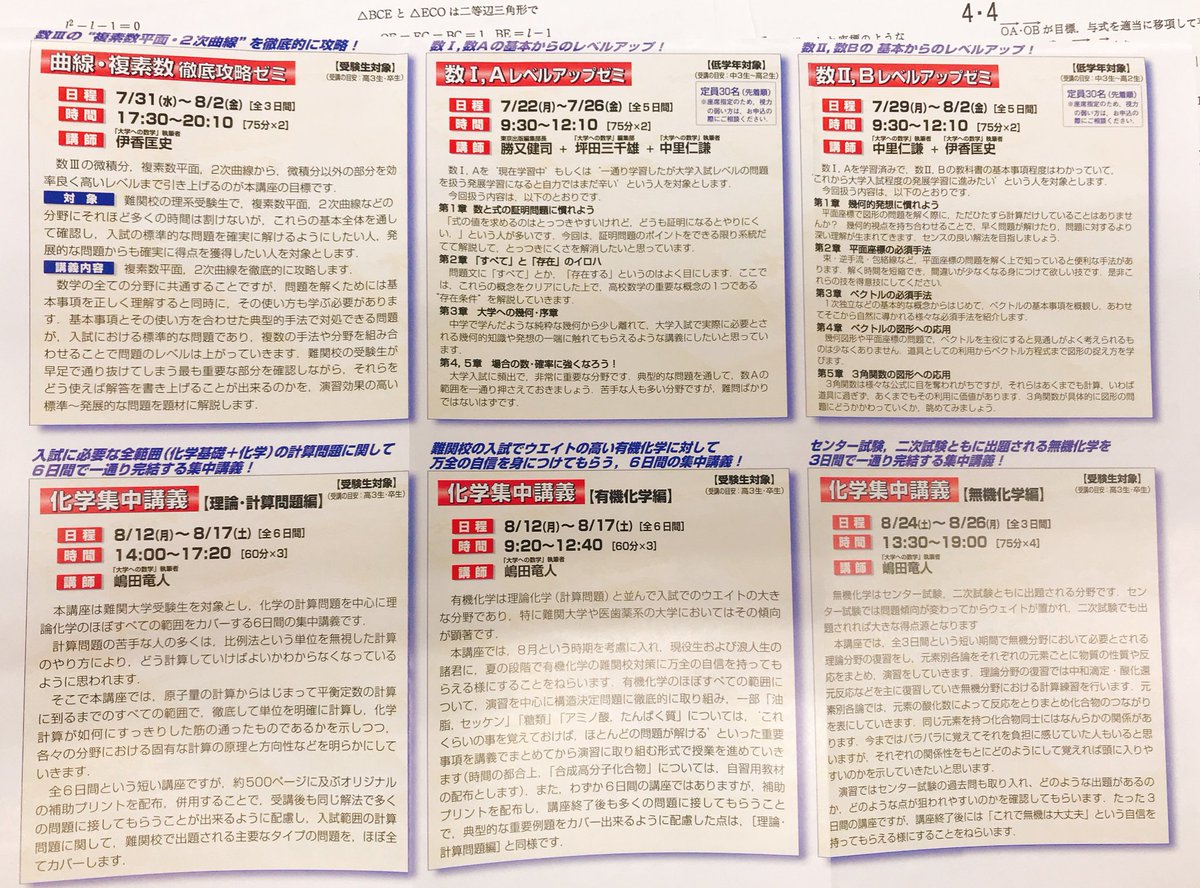 l²－l－1＝0
△BCE と △ECO は二等辺三角形で
4・4
OA・OB が目標．与式を適当に移項して
数Ⅲの“複素数平面・2次曲線”を徹底的に攻略！
曲線・複素数 徹底攻略ゼミ
【受験生対象】
(受講の目安：高3生・卒生)
日程 7/31(水)～8/2(金)［全3日間］
時間 17:30～20:10［75分×2］
「大学への数学」執筆者
講師 伊香匡史
数Ⅲの微積分，複素数平面，2次曲線から，微積分以外の部分を効
率良く高いレベルまで引き上げるのが本講座の目標です．
対象 難関校の理系受験生で，複素数平面，2次曲線などの
分野にそれほど多くの時間は割けないが，これらの基本全体を通し
て確認し，入試の標準的な問題を確実に解けるようにしたい人，発
展的な問題からも確実に得点を獲得したい人を対象とします．
講義内容 複素数平面，2次曲線を徹底的に攻略します．
数学の全ての分野に共通することですが，問題を解くためには基
本事項を正しく理解すると同時に，その使い方も学ぶ必要がありま
す．基本事項とその使い方を合わせた典型的手法で対処できる問題
が，入試における標準的な問題であり，複数の手法や分野を組み合
わせることで問題のレベルは上がっていきます．難関校の受験生が
早足で通り抜けてしまう最も重要な部分を確認しながら，それらを
どう使えば解答を書き上げることが出来るのかを，演習効果の高い
標準～発展的な問題を題材に解説します．
数Ⅰ，数Aの基本からのレベルアップ！
数Ⅰ,A レベルアップゼミ
【低学年対象】
(受講の目安：中3生～高2生)
定員30名(先着順)
※座席指定のため，視力
の弱い方は，お申込の
際にご相談ください．
日程 7/22(月)～7/26(金)［全5日間］
時間 9:30～12:10［75分×2］
東京出版編集部長 「大学への数学」編集部 「大学への数学」執筆者
講師 勝又健司 + 坪田三千雄 + 中里仁謙
数Ⅰ，Aを“現在学習中”もしくは“一通り学習したが大学入試レベルの問題
を扱う発展学習になると自力ではまだ辛い”という人を対象とします．
今回扱う内容は，以下のとおりです．
第1章 数と式の証明問題に慣れよう
「式の値を求めるのはとっつきやすいけれど，どうも証明になるとやりにく
い．」という人が多いです．今回は，証明問題のポイントをできる限り系統だ
てて解説して，とっつきにくさを解消したいと思っています．
第2章 「すべて」と「存在」のイロハ
問題文に「すべて」とか，「存在する」というのはよく目にします．ここで
は，これらの概念をクリアにした上で，高校数学の重要な概念の1つである
“存在条件”を解説していきます．
第3章 大学への幾何・序章
中学で学んだような純粋な幾何から少し離れて，大学入試で実際に必要とさ
れる幾何的知識や発想の一端に触れてもらえるような講義にしたいと思ってい
ます．
第4，5章 場合の数・確率に強くなろう！
大学入試に頻出で，非常に重要な分野です．典型的な問題を通して，数Aの
範囲を一通り押さえておきましょう．苦手な人も多い分野ですが，難問ばかり
ではないはずです．
数Ⅱ，数Bの基本からのレベルアップ！
数Ⅱ,B レベルアップゼミ
【低学年対象】
(受講の目安：中3生～高2生)
定員30名(先着順)
※座席指定のため，視力
の弱い方は，お申込の
際にご相談ください．
日程 7/29(月)～8/2(金)［全5日間］
時間 9:30～12:10［75分×2］
「大学への数学」執筆者 「大学への数学」執筆者
講師 中里仁謙 + 伊香匡史
数Ⅰ，Aを学習済みで，数Ⅱ，Bの教科書の基本事項程度はわかっていて，
“これから大学入試程度の発展学習に進みたい”という人を対象とします．
今回扱う内容は，以下のとおりです．
第1章 幾何的発想に慣れよう
平面座標で図形の問題を解く際に，ただひたすら計算だけしていることはありませ
んか？ 幾何的視点を持ち合わせることで，早く問題が解けたり，問題に対するより
深い理解が生まれてきます．センスの良い解法を目指しましょう．
第2章 平面座標の必須手法
束・逆手流・包絡線など，平面座標の問題を解く上で知っていると便利な手法があ
ります．解く時間を短縮でき，間違いが少なくなる身につけて欲しい技です．是非こ
れらの技を得意技にしてください．
第3章 ベクトルの必須手法
1次独立などの基本的な概念からはじめて，ベクトルの基本事項を概観し，あわせ
てそこから自然に導かれる様々な必須手法を紹介します．
第4章 ベクトルの図形への応用
幾何図形や平面座標の問題で，ベクトルを主役にすると見通しがよく考えられるも
のは少なくありません．道具としての利用からベクトル方程式まで図形の捉え方を学
びます．
第5章 3角関数の図形への応用
3角関数は様々な公式に目を奪われがちですが，それらはあくまでも計算，いわば
道具に過ぎず，あくまでもその利用に価値があります．3角関数が具体的に図形の問
題にどうかかわっていくか，眺めてみましょう．
入試に必要な全範囲(化学基礎＋化学)の計算問題に関して
6日間で一通り完結する集中講義！
化学集中講義【理論・計算問題編】
【受験生対象】
(受講の目安：高3生・卒生)
日程 8/12(月)～8/17(土)［全6日間］
時間 14:00～17:20［60分×3］
「大学への数学」執筆者
講師 嶋田竜人
本講座は難関大学受験生を対象とし，化学の計算問題を中心に理
論化学のほぼすべての範囲をカバーする6日間の集中講義です．
計算問題の苦手な人の多くは，比例法という単位を無視した計算
のやり方により，どう計算していけばよいかわからなくなっている
ように思われます．
そこで本講座では，原子量の計算からはじまって平衡定数の計算
に到るまでのすべての範囲で，徹底して単位を明確に計算し，化学
計算が如何にすっきりした筋の通ったものであるかを示しつつ，
各々の分野における固有な計算の原理と方向性などを明らかにして
いきます．
全6日間という短い講座ですが，約500ページに及ぶオリジナル
の補助プリントを配布，併用することで，受講後も同じ解法で多く
の問題に接してもらうことが出来るように配慮し，入試範囲の計算
問題に関して，難関校で出題される主要なタイプの問題を，ほぼ全
てカバーします．
難関校の入試でウエイトの高い有機化学に対して
万全の自信を身につけてもらう，6日間の集中講義！
化学集中講義【有機化学編】
【受験生対象】
(受講の目安：高3生・卒生)
日程 8/12(月)～8/17(土)［全6日間］
時間 9:20～12:40［60分×3］
「大学への数学」執筆者
講師 嶋田竜人
有機化学は理論化学(計算問題)と並んで入試でのウエイトの大き
な分野であり，特に難関大学や医歯薬系の大学においてはその傾向
が顕著です．
本講座では，8月という時期を考慮に入れ，現役生および浪人生の
諸君に，夏の段階で有機化学の難関校対策に万全の自信を持っても
らえる様にすることをねらいます．有機化学のほぼすべての範囲に
ついて，演習を中心に構造決定問題に徹底的に取り組み，一部「油
脂，セッケン」「糖類」「アミノ酸，たんぱく質」については，“これ
くらいの事を覚えておけば，ほとんどの問題が解ける”といった重要
事項を講義でまとめてから演習に取り組む形式で授業を進めていき
ます(時間の都合上，「合成高分子化合物」については，自習用教材
の配布とします)．また，わずか6日間の講座ではありますが，補助
プリントを配布し，講座終了後も多くの問題に接してもらうこと
で，典型的な重要例題をカバー出来るように配慮した点は，［理論・
計算問題編］と同様です．
センター試験，二次試験ともに出題される無機化学を
3日間で一通り完結する集中講義！
化学集中講義【無機化学編】
【受験生対象】
(受講の目安：高3生・卒生)
日程 8/24(土)～8/26(月)［全3日間］
時間 13:30～19:00［75分×4］
「大学への数学」執筆者
講師 嶋田竜人
無機化学はセンター試験，二次試験ともに出題される分野です．セン
ター試験では問題傾向が変わってからウェイトが置かれ，二次試験でも出
題されれば大きな得点源となります
本講座では，全3日間という短い期間で無機分野において必要とされる
理論分野の復習をし，元素別各論をそれぞれの元素ごとに物質の性質や反
応をまとめ，演習をしていきます．理論分野の復習では中和滴定・酸化還
元反応などを主に復習していき無機分野における計算練習を行います．元
素別各論では，元素の酸化数によって反応をとりまとめ化合物のつながり
を表にしていきます．同じ元素を持つ化合物同士にはなんらかの関係があ
ります．今まではバラバラに覚えてそれを負担に感じていた人もいると思
いますが，それぞれの関係性をもとにどのようにして覚えれば頭に入りや
すいのかを示していきたいと思います．
演習ではセンター試験の過去問も取り入れ，どのような出題があるの
か，どのような点が狙われやすいのかを確認してもらいます．たった3
日間の講座ですが，講座終了後には「これで無機は大丈夫」という自信を
持ってもらえる様にすることをねらいます．